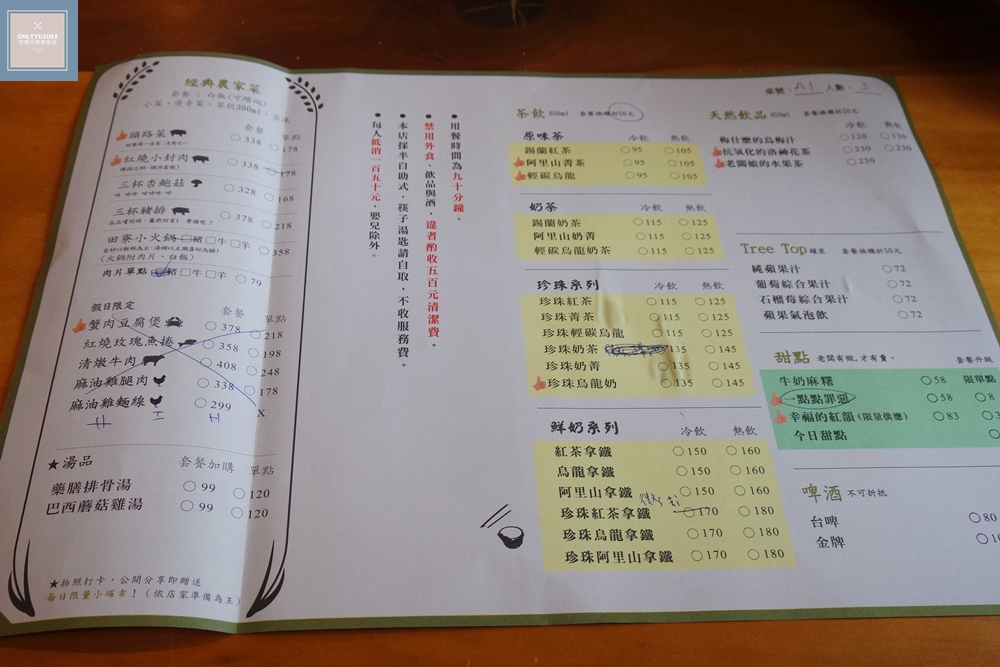 ONLYYUSUKE
經典農家菜
套餐：白飯(可續碗)
小菜、燙青菜、茶飲300ml、茶凍
套餐 單點
頭路菜 338 178
紅燒小封肉 338 178
三杯杏鮑菇 328 168
三杯豬排 378 218
田寮小火鍋 豬 牛 羊 358
(火鍋附肉片、白飯)
肉片單點 豬 牛 羊 79
假日限定 套餐 單點
蟹肉豆腐煲 378 218
紅燒玫瑰魚捲 358 248
清燉牛肉 408 298
麻油雞腿肉 338 178
麻油雞麵線 299 X
★湯品 套餐加購 單點
藥膳排骨湯 99 120
巴西蘑菇雞湯 99 120
★拍照打卡，公開分享即贈送
每日限量小確幸！（依店家準備為主）
• 用餐時間為九十分鐘。
• 禁用外食、飲品與酒，違者酌收五百元清潔費。
• 本店採半自助式，筷子湯匙請自取，不收服務費。
• 每人低消一百五十元，嬰兒除外。
桌號：A1 人數：3
茶飲 650ml 套餐換購折50元
原味茶 冷飲 熱飲
錫蘭紅茶 95 105
阿里山菁茶 95 105
輕碳烏龍 95 105
奶茶 冷飲 熱飲
錫蘭奶茶 115 125
阿里山奶菁 115 125
輕碳烏龍奶茶 115 125
珍珠系列 冷飲 熱飲
珍珠紅茶 115 125
珍珠菁茶 115 125
珍珠輕碳烏龍 115 125
珍珠奶茶 135 145
珍珠奶菁 135 145
珍珠烏龍奶 135 145
鮮奶系列 冷飲 熱飲
紅茶拿鐵 150 160
烏龍拿鐵 150 160
阿里山拿鐵 150 160
珍珠紅茶拿鐵 170 180
珍珠烏龍拿鐵 170 180
珍珠阿里山拿鐵 170 180
天然飲品 650ml 套餐換購折50元
冷飲 熱飲
梅什麼的烏梅汁 120 130
抗氧化的洛神花茶 230 230
老闆娘的水果茶 230
Tree Top 樹頂 套餐換購折50元
純蘋果汁 72
葡萄綜合果汁 72
石榴莓綜合果汁 72
蘋果氣泡飲 72
甜點 老闆有做，才有賣。 套餐升級
牛奶麻糬 58 限單點
一點點罪惡 58 8
幸福的紅韻 (限量供應) 83
今日甜點
啤酒 不可折抵
台啤 80
金牌